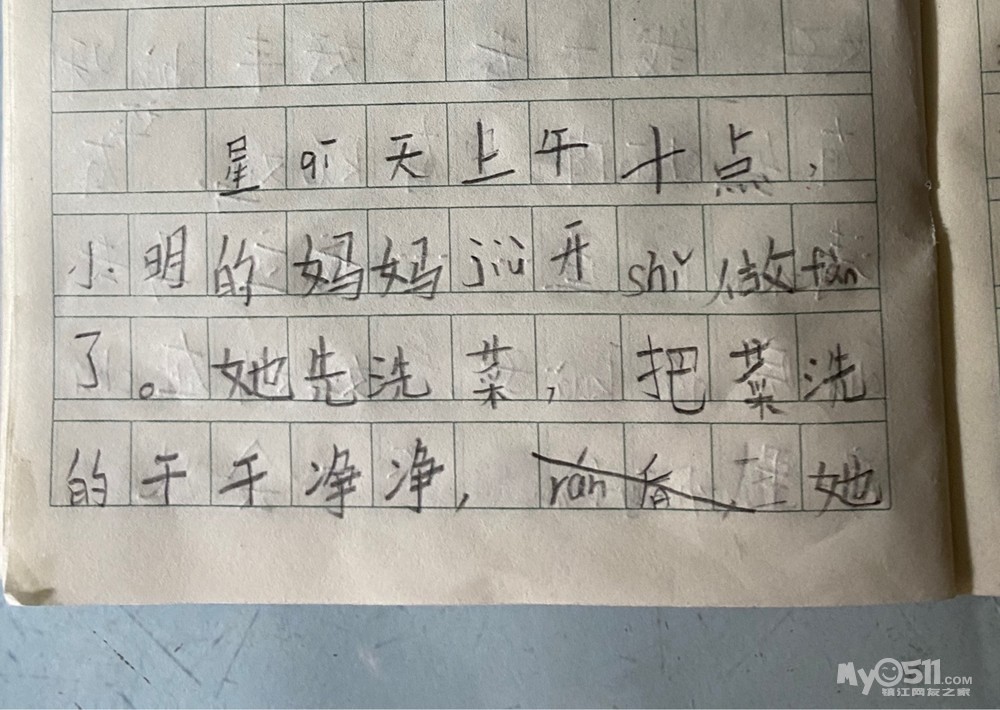 星qī天上午十点,
小明的妈妈jiù开shǐ做fàn
了。她先洗菜,把菜洗
的干干净净,rán后她
My0511.COM
镇江网友之家